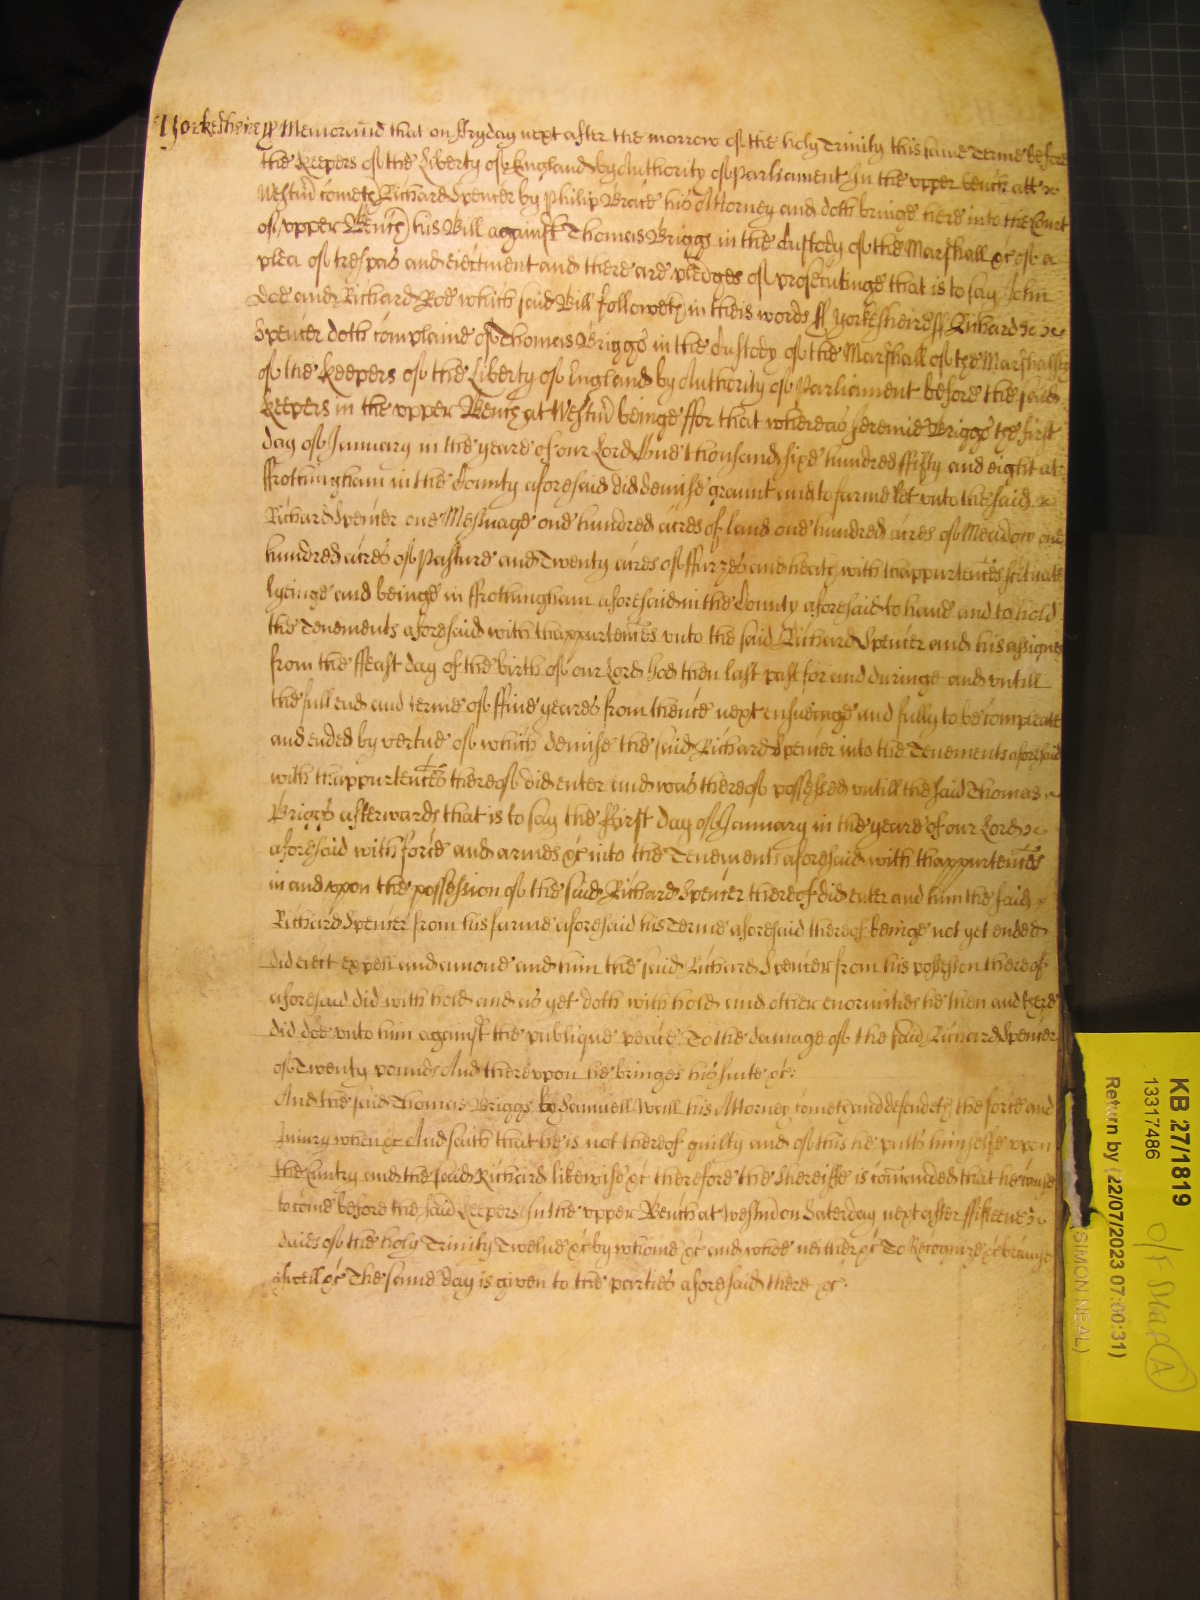 Yorkesheire ss Memorand that on ffryday next after the morrow of the holy Trinity this same Terme before
the Keepers of the Liberty of England by Authority of Parliament In the upper bench att
Westm cometh Richard Spencer by Philip Brace his Attorney and doth bringe here into the Court
of upper Bench his Bill against Thomas Briggs in the Custody of the Marshall &c of a
plea of trespas and eiectment and there are pledges of prosecutinge that is to say John
Doe and Richard Roe which said Bill followeth in theis words ss Yorkesheire ss Richard
Spencer doth complaine of Thomas Briggs in the Custody of the Marshall of the Marshallsey
of the Keepers of the Liberty of England by Authority of Parliament before the said
Keepers in the upper Bench at Westm beinge ffor that whereas Jeremie Briggs the first
day of January in the yeare of our Lord One thousand sixe hundred ffifty and eight at
ffrothingham in the County aforesaid did demise graunt and to farme let unto the said
Richard Spencer one Messuage one hundred acres of land one hundred acres of Meadow one
hundred acres of Pasture and Twenty acres of ffurzes and heath with thappurtences scituate
lyeinge and beinge in ffrothingham aforesaid in the County aforesaid to have and to hold
the Tenements aforesaid with thappurtences unto the said Richard Spencer and his assignes
from the ffeast day of the birth of our Lord God then last past for and duringe and untill
the full end and terme of ffive yeares from thence next ensueinge and fully to be compleate
and ended by vertue of which demise the said Richard Spencer into the Tenements aforesaid
with thappurtences thereof did enter and was thereof possessed untill the said Thomas
Briggs afterwards that is to say the ffirst day of January in the yeare of our Lord
aforesaid with force and armes &c into the Tenements aforesaid with thappurtences
in and upon the possession of the said Richard Spencer thereof did enter and him the said
Richard Spencer from his farme aforesaid his Terme aforesaid thereof beinge not yet ended
did eiect expell and amove and him the said Richard Spencer from his possession thereof
aforesaid did with hold and as yet doth with hold and other enormities he then and there
did doe unto him against the publique peace To the damage of the said Richard Spencer
of Twenty pounds And thereupon he bringes his suite &c:
And the said Thomas Briggs by Samuell Wall his Attorney cometh and defendeth the force and
Iniury when &c And saith that he is not thereof guilty and of this he putts himselfe upon
the Cuntry and the said Richard likewise &c therefore the Sheriffe is comanded that he cause
to come before the said Keepers In the upper Bench at Westm on Saterday next after ffifteene
daies of the holy Trinity Twelve &c by whome &c and whoe neither &c To Recognize &c because
aswell &c The same day is given to the parties aforesaid there &c:
KB 27/1819
13317486
Return by (22/07/2023 07:00:31)
(SIMON NEAL)
A